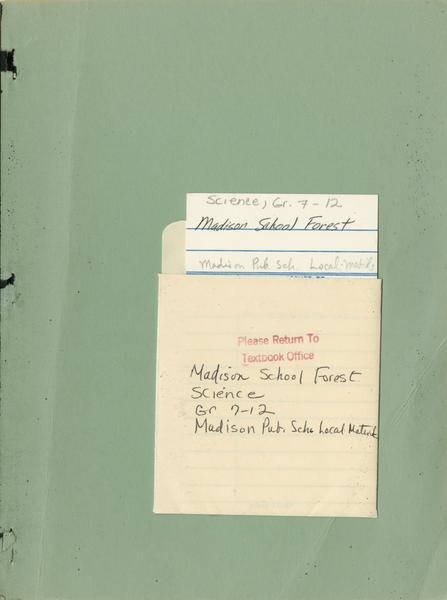 Science, Gr. 7-12
Madison School Forest
Madison Pub Sch Local-
Please Return To
Textbook Office
Madison School Forest
Science
Gr 7-12
Madison Pub. Sch. Local Mater